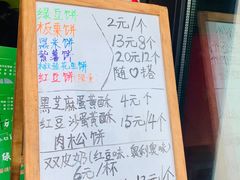 绿豆饼
板栗饼
黑米饼
紫薯饼
红豆饼
2元/个
13元8个
20元12个
随心搭
黑芝麻蛋黄酥 4元/个
红豆沙蛋黄酥 15元/4个
肉松饼
双皮奶(红豆味、奥利奥味)
6元/杯